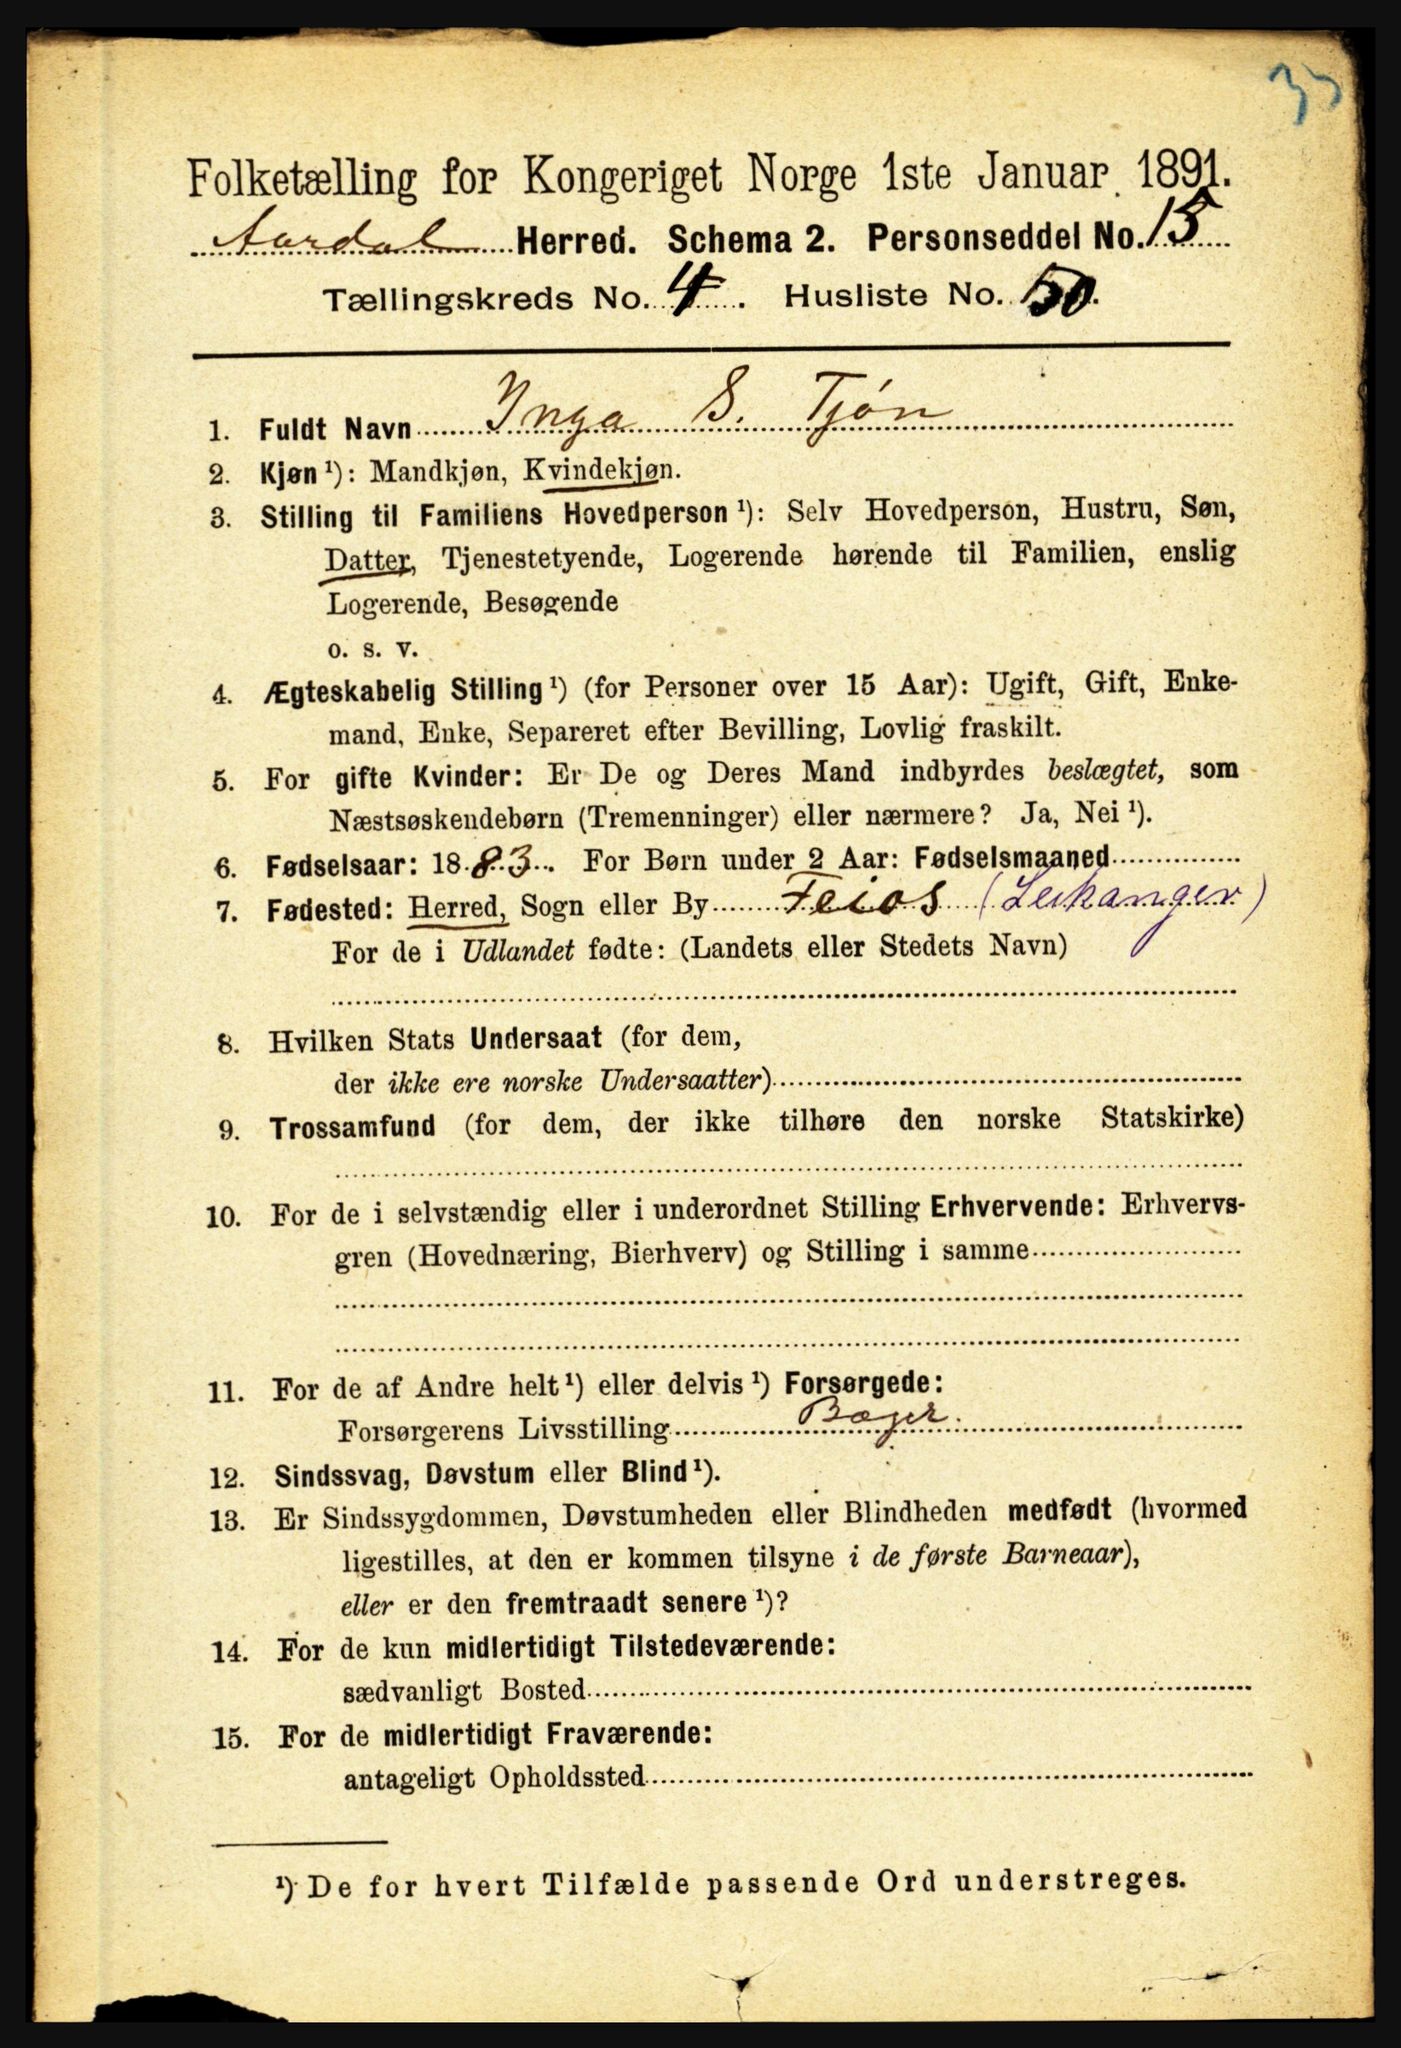 33
Folketælling for Kongeriget Norge 1ste Januar 1891.
Aardal Herred. Schema 2. Personseddel No. 15
Tællingskreds No. 4. Husliste No. 50.
1. Fuldt Navn Inga S. Tjøn
2. Kjøn ¹): Mandkjøn, Kvindekjøn.
3. Stilling til Familiens Hovedperson ¹): Selv Hovedperson, Hustru, Søn,
Datter, Tjenestetyende, Logerende hørende til Familien, enslig
Logerende, Besøgende
o. s. v.
4. Ægteskabelig Stilling ¹) (for Personer over 15 Aar): Ugift, Gift, Enke-
mand, Enke, Separeret efter Bevilling, Lovlig fraskilt.
5. For gifte Kvinder: Er De og Deres Mand indbyrdes beslægtet, som
Næstsøskendebørn (Tremenninger) eller nærmere? Ja, Nei ¹).
6. Fødselsaar: 1883. For Børn under 2 Aar: Fødselsmaaned
7. Fødested: Herred, Sogn eller By Feios (Leikanger)
For de i Udlandet fødte: (Landets eller Stedets Navn)
8. Hvilken Stats Undersaat (for dem,
der ikke ere norske Undersaatter)
9. Trossamfund (for dem, der ikke tilhøre den norske Statskirke)
10. For de i selvstændig eller i underordnet Stilling Erhvervende: Erhvervs-
gren (Hovednæring, Bierhverv) og Stilling i samme
11. For de af Andre helt ¹) eller delvis ¹) Forsørgede:
Forsørgerens Livsstilling Bager.
12. Sindssvag, Døvstum eller Blind ¹).
13. Er Sindssygdommen, Døvstumheden eller Blindheden medfødt (hvormed
ligestilles, at den er kommen tilsyne i de første Barneaar),
eller er den fremtraadt senere ¹)?
14. For de kun midlertidigt Tilstedeværende:
sædvanligt Bosted
15. For de midlertidigt Fraværende:
antageligt Opholdssted
¹) De for hvert Tilfælde passende Ord understreges.